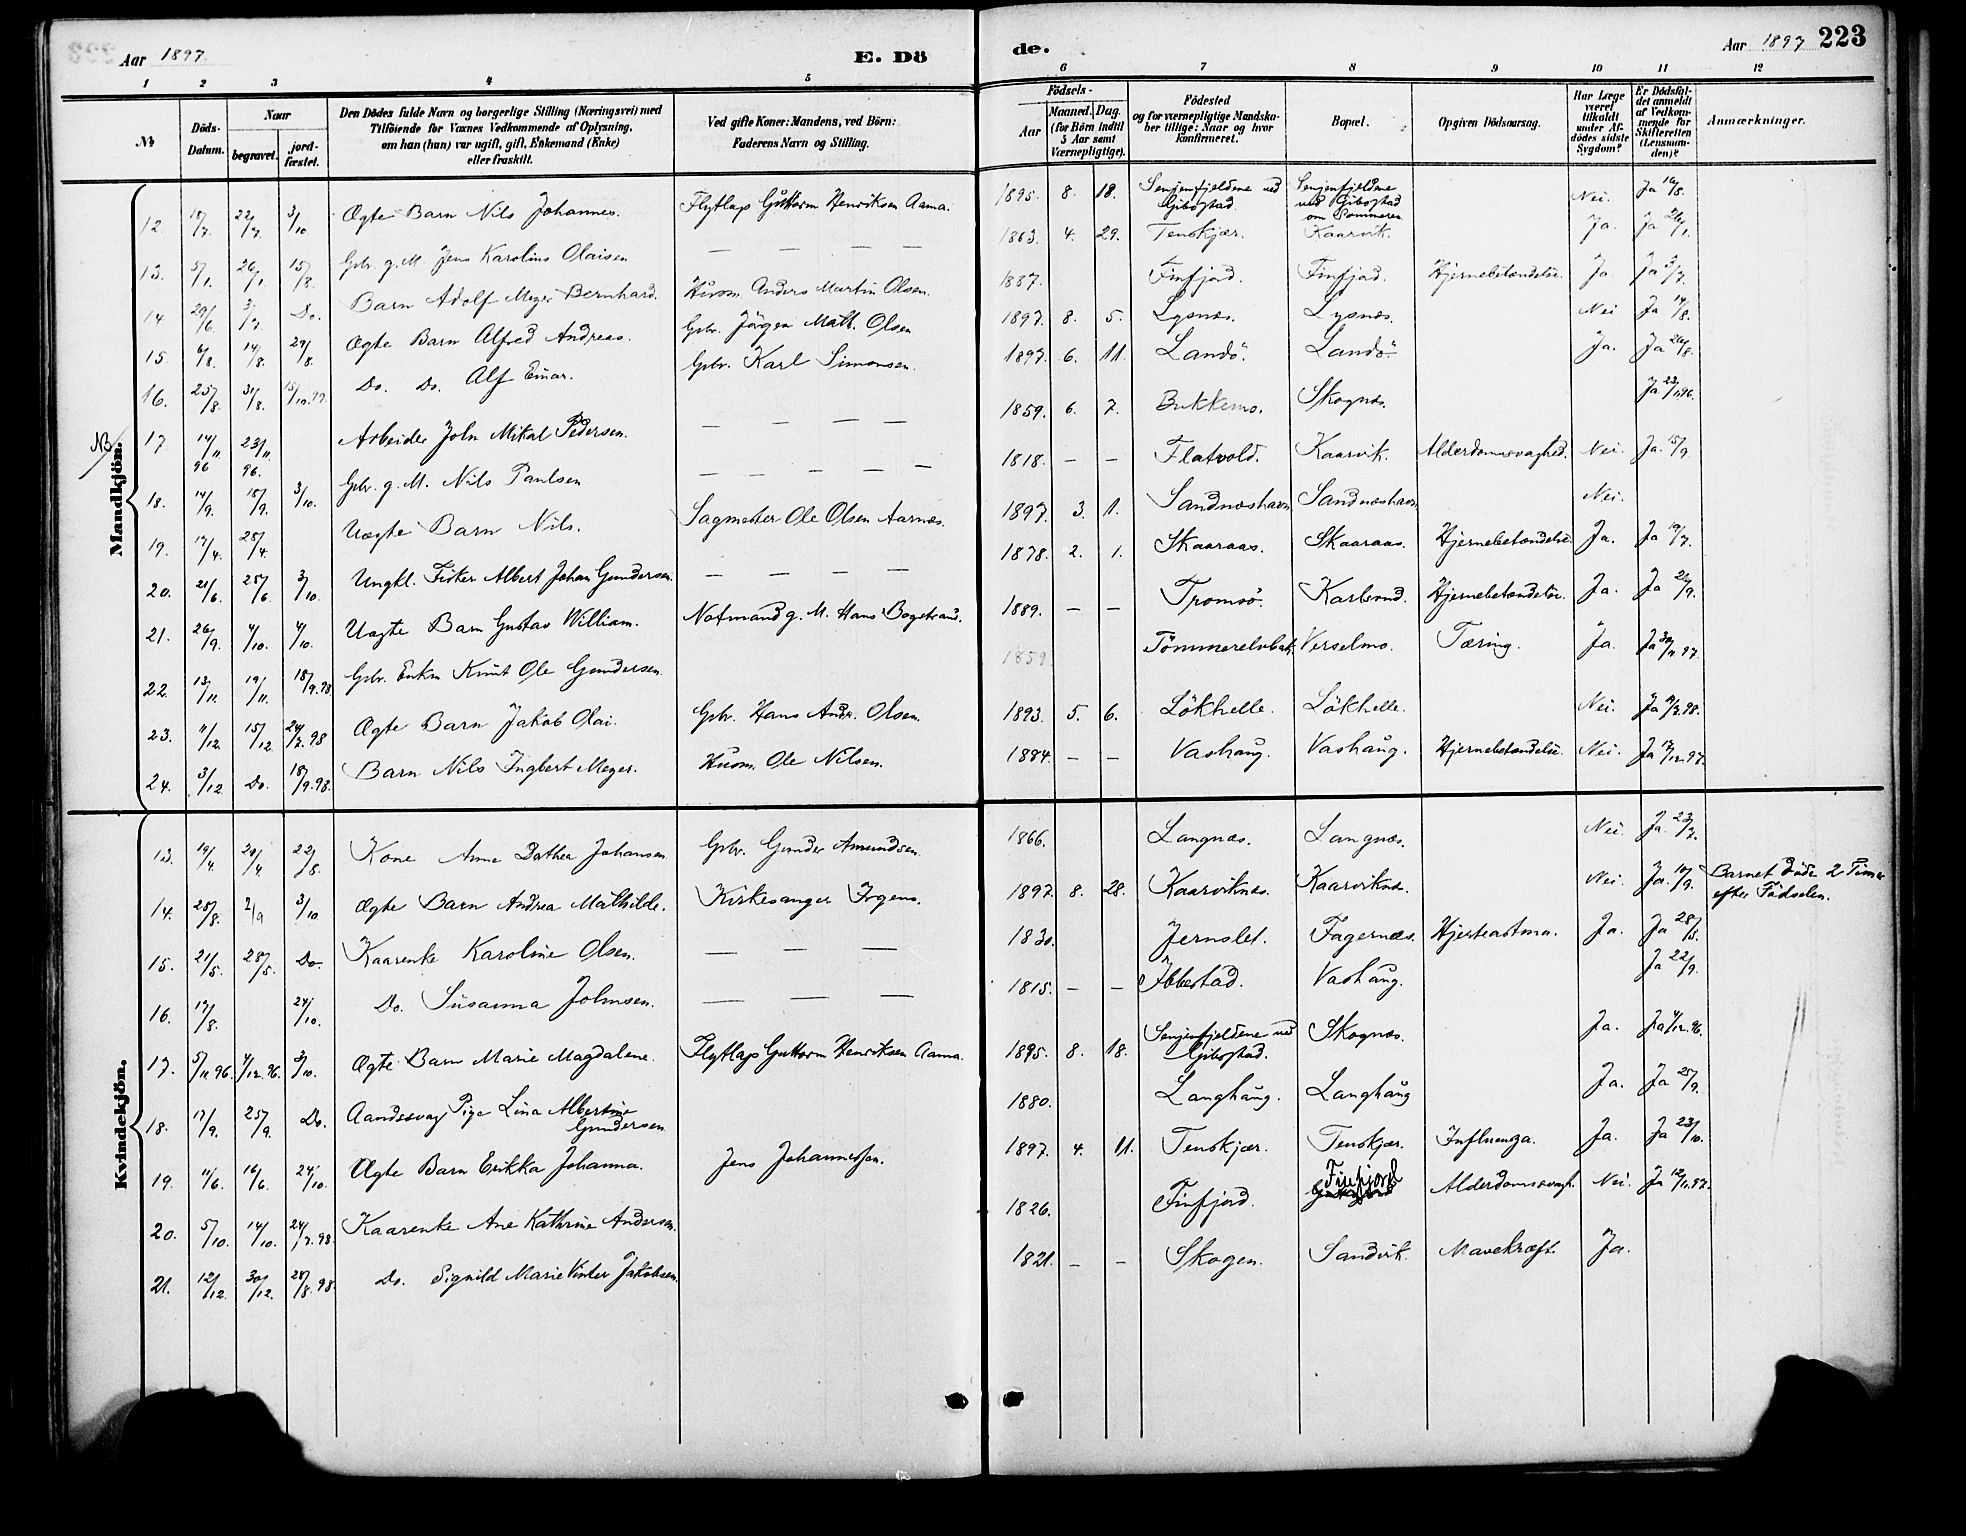 Aar 1897
E. Dö
de.
Aar 1897 223
1 2 3 4 5 6 7 8 9 10 11 12
№
Döds-Datum.
Naar
begravet.
jord-fæstet.
Den Dödes fulde Navn og borgerlige Stilling (Næringsvei) med
Tilföiende for Voxnes Vedkommende af Oplysning,
om han (hun) var ugift, gift, Enkemand (Enke)
eller fraskilt.
Ved gifte Koner: Mandens, ved Börn:
Faderens Navn og Stilling.
Födsels-
Aar
Maaned. Dag.
(for Börn indtil
5 Aar samt
Værnepligtige).
Födested
og for værnepligtige Mandska-
ber tillige: Naar og hvor
konfirmeret.
Bopæl.
Opgiven Dödsaarsag.
Har Læge
været
tilkaldt
under Af-
dödes sidste
Sygdom?
Er Dödsfal-
det anmeldt
af Vedkom-
mende for
Skifteretten
(Lensman-
den)?
Anmærkninger.
Mandkjön.
NB
12. 18/7. 22/7. 3/10. Ægte Barn Nils Johannes. Flytlap Guttorm Henriksen Aama. 1895. 8. 18. Senjenfjeldene ved Gibostad. Senjenfjeldene ved Gibostad om Sommeren Nei. Ja 16/8.
13. 5/1. 26/1. 15/8. Gbr. g. M. Jens Karolius Olaisen — — — — 1863. 4. 29. Tenskjær. Kaarvik. Ja. Ja 26/1.
14 29/6. 3/7. Do. Barn Adolf Meyer Bernhard. Husm. Anders Martin Olsen. 1887. Finfjord. Finfjord. Hjernebetændelse. Ja. Ja 3/7.
15. 6/8. 14/8. 29/8. Ægte Barn Alfred Andreas. Gbr. Jörgen Math. Olsen 1897. 8. 5. Lysnes. Lysnes. Nei Ja 14/8.
16. 25/8. 31/8. 15/10.99. Do. Do. Alf Einar. Gbr. Karl Simonsen. 1897. 6. 11. Landö. Landö. Ja. Ja 26/8.
17 14/11 96 23/11 96. Arbeider John Mikal Pedersen. — — — — 1859. 6. 7. Bukkemo. Skognes. Ja 23/11.96.
18. 14/9. 18/9. 3/10. Gbr. g. M. Nils Paulsen — — — — 1818. — — Flatvold. Kaarvik. Alderdomssvaghed. Nei. Ja. 15/9.
19. 17/4. 25/4. Uægte Barn Nils. Sagmester Ole Olsen Aarnæs. 1897. 3. 1. Sandnæshavn Sandnæshavn Nei.
20. 21/6. 25/6. 3/10. Ungkl. Fisker Albert Johan Gundersen. — — — — 1878. 2. 1. Skaaraas. Skaaraas. Hjernebetændelse. Ja. Ja 19/7.
21. 26/9. 4/10. 4/10. Uægte Barn Gustav William. Notmand g. M. Hans Bogstrand. 1889. — — Tromsö. Karlsrud. Hjernebetændelse. Ja. Ja 26/9.
22. 13/11. 19/11. 18/9.98 Gbr. Enkm Knut Ole Gundersen. 1859 Tömmerelvbak. Verselmo. Tæring. Ja. Ja 30/11.97.
23. 11/12. 15/12. 24/7.98 Ægte Barn Jakob Olai. Gbr. Hans Andr. Olsen. 1893. 5. 6. Lökhelle. Lökhelle. Nei. Ja
24. 3/12 Do. 18/9.98. Barn Nils Ingbert Meyer. Husm. Ole Nilsen. 1884. — — Vashaug. Vashaug. Hjernebetændelse. Nei. Ja 17/12.97.
Kvindekjön.
13. 19/4. 29/4. 22/8. Kone Anne Dorthea Johansen Gbr. Gunder Amundsen. 1866. Langnæs. Langnæs. Nei. Ja. 23/7.
14. 28/8. 2/9 3/10 Ægte Barn Andrea Mathilde. Kirkesanger Irgens. 1897. 8. 28. Kaarviknes. Kaarviknes. Nei. Ja. 10/9. Barnet döde 2 Timer efter Födselen.
15. 21/5. 28/5. Do. Kaarenke Karoline Olsen. — — — 1830. Jernslet. Fagernæs. Hjerteastma. Ja. Ja 28/5.
16. 17/8. 24/10. Do. Susanna Johnsen. — — — 1815. — — Ibbestad. Vashaug. Ja 22/9.
17. 5/11 96. 4/12.96. 3/10. Ægte Barn Marie Magdalene. Flytlap Guttorm Henriksen Aama. 1895. 8. 18. Senjenfjeldene ved Gibostad. Skognæs. Ja. Ja 4/12.96.
18. 17/9. 25/9. Do. Aandssvag Pige Lina Albertine Gundersen 1880. Langhaug. Langhaug Ja. Ja 25/9.
19. 11/6. 16/6. 24/10 Ægte Barn Erikka Johanna. Jens Johannessen. 1897. 4. 11. Tenskjær. Tenskjær. Influenza. Ja. Ja 23/10.
20. 5/10. 14/10. 24/7.98. Kaarenke Ane Kathrine Andersen. 1826. Finfjord. Finfjord Alderdomssvagh. Nei. Ja 12/11.97.
21. 12/12. 30/12. 28/8.98 Do. Signild Marie Vinter Jakobsen. 1821. — — Skogen. Sandvik. Mavekræft. Ja.